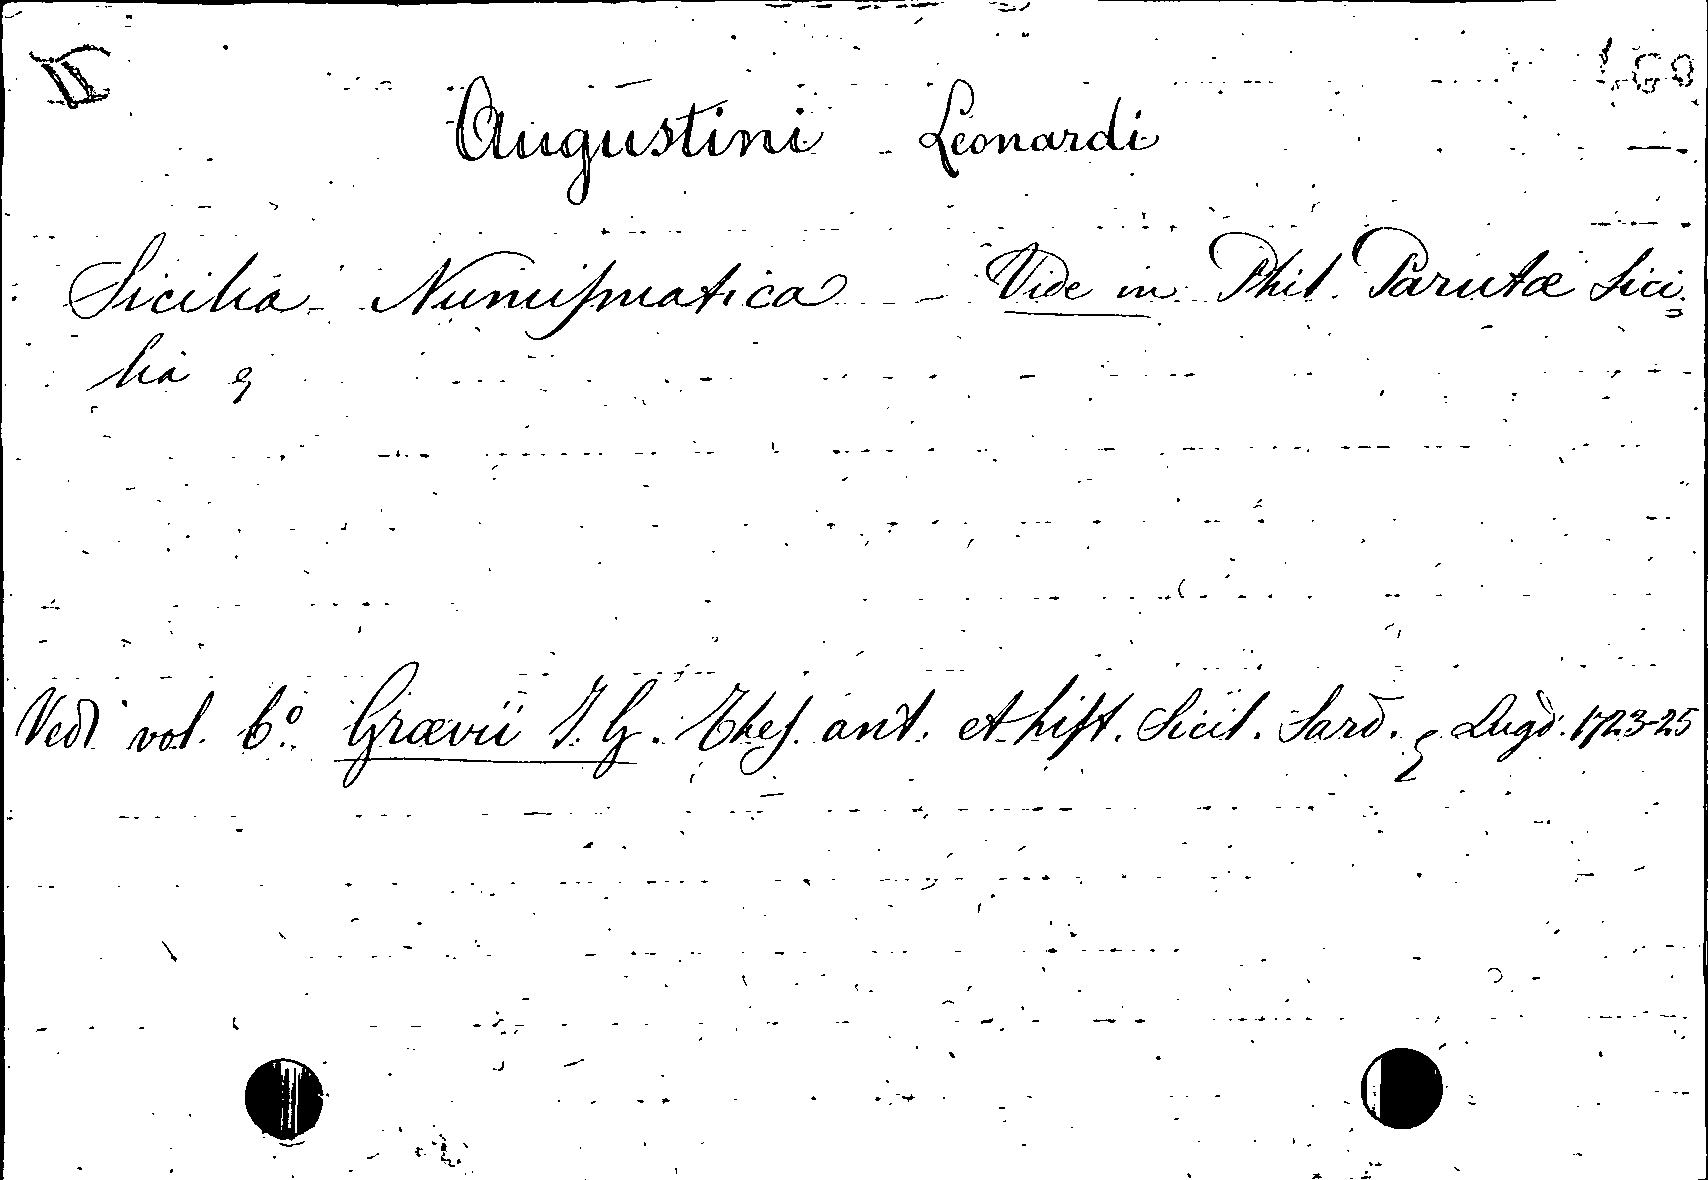 II
Augustini Leonardi
Sicilia Numismatica - Vide in Phil. Parutæ Sici=
lia &
Vedi vol. 6º Grævii J. G. Thes. ant. et hist. Sicil. Sard. & Lugd. 1723-25